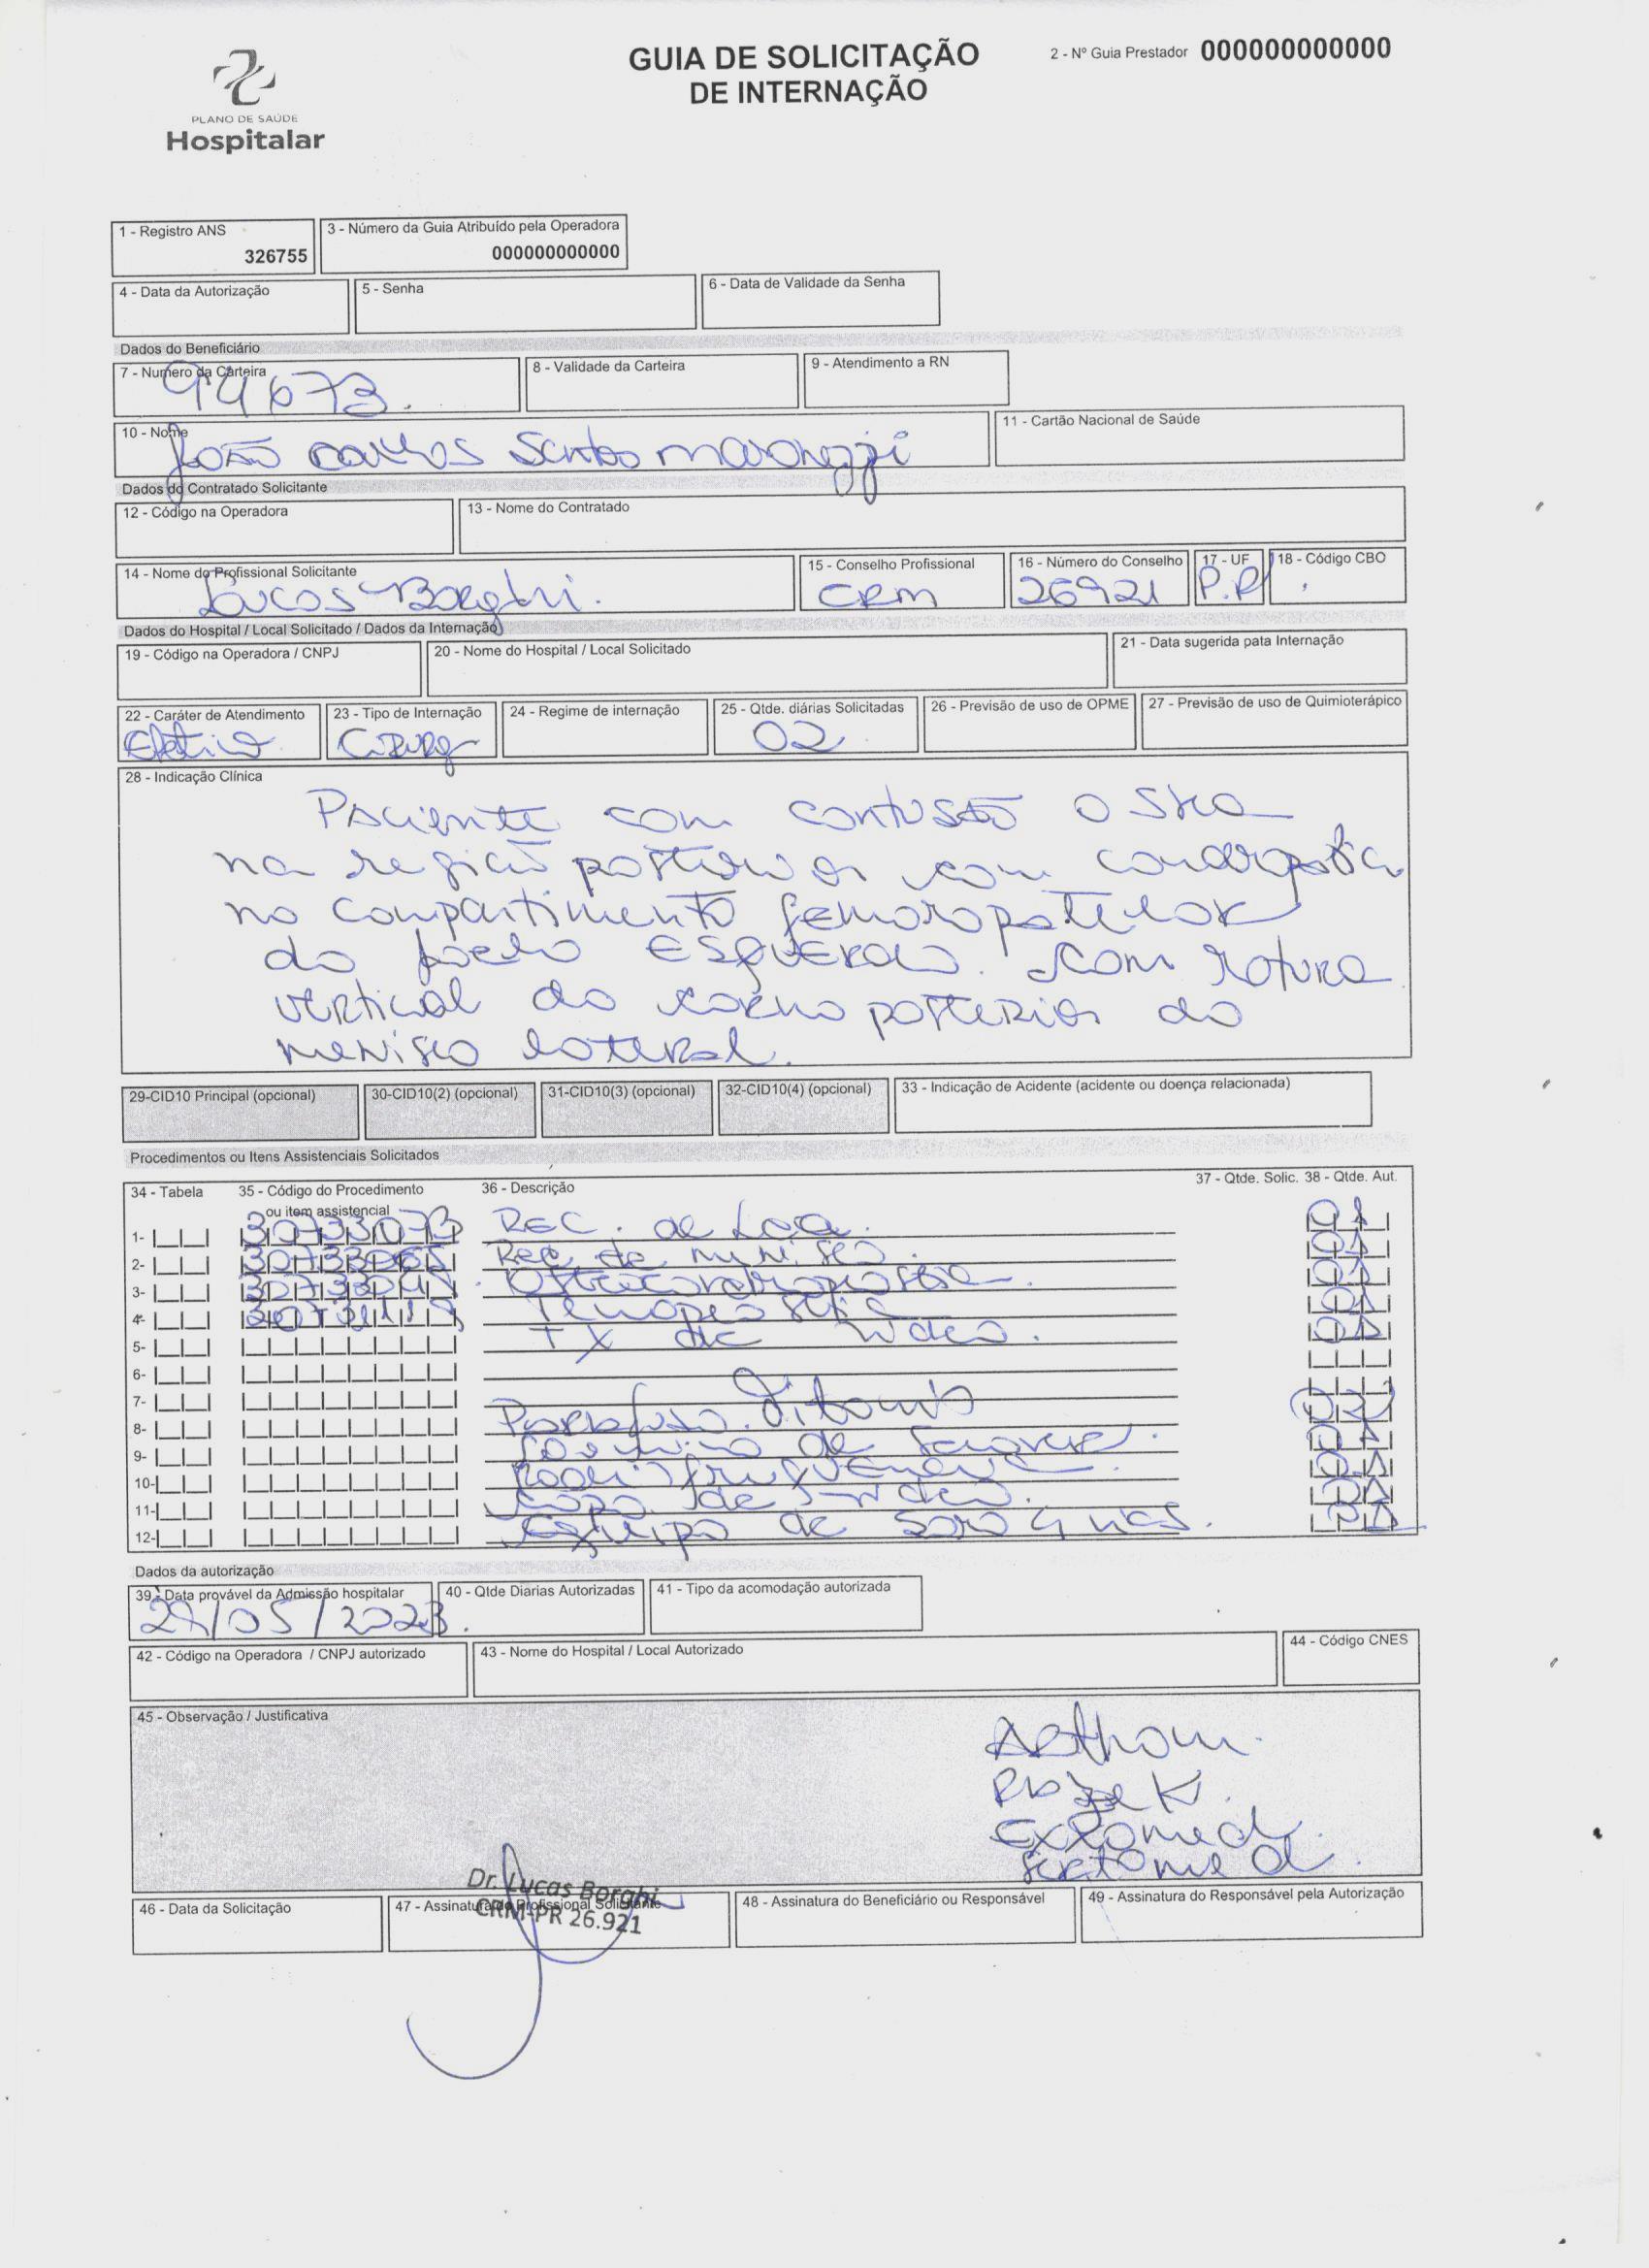 GUIA DE SOLICITAÇÃO
DE INTERNAÇÃO
2 - Nº Guia Prestador 000000000000
PLANO DE SAÚDE
Hospitalar
1 - Registro ANS
326755
3 - Número da Guia Atribuído pela Operadora
000000000000
4 - Data da Autorização
5 - Senha
6 - Data de Validade da Senha
Dados do Beneficiário
7 - Numero da Carteira
94673.
8 - Validade da Carteira
9 - Atendimento a RN
10 - Nome
João Carlos Santo
11 - Cartão Nacional de Saúde
Dados do Contratado Solicitante
12 - Código na Operadora
13 - Nome do Contratado
14 - Nome do Profissional Solicitante
Lucas Borghi.
15 - Conselho Profissional
CRM
16 - Número do Conselho
26921
17 - UF
P.R
18 - Código CBO
Dados do Hospital / Local Solicitado / Dados da Internação
19 - Código na Operadora / CNPJ
20 - Nome do Hospital / Local Solicitado
21 - Data sugerida pata Internação
22 - Caráter de Atendimento
Eletivo
23 - Tipo de Internação
Cirurg
24 - Regime de internação
25 - Qtde. diárias Solicitadas
02
26 - Previsão de uso de OPME
27 - Previsão de uso de Quimioterápico
28 - Indicação Clínica
Paciente com contusão ossea
na região posterior com condropatia
no compartimento femoropatelar
do joelho esquerdo. com rotura
vertical do corno posterior do
menisco lateral.
29-CID10 Principal (opcional)
30-CID10(2) (opcional)
31-CID10(3) (opcional)
32-CID10(4) (opcional)
33 - Indicação de Acidente (acidente ou doença relacionada)
Procedimentos ou Itens Assistenciais Solicitados
34 - Tabela
35 - Código do Procedimento
ou item assistencial
36 - Descrição
37 - Qtde. Solic. 38 - Qtde. Aut.
1- 30733073 REC. de Lca. 01
2- 30733065 Rec. de menisco. 01
3- Osteocondroplastia. 01
4- Tenoplastia 01
5- TX de video. 01
6-
7-
8- Parafuso Titanio
9- de 01
10- Radiofrequencia. 01
11- Capa de video. 01
12- Equipo de soro 4 vias. 01
Dados da autorização
39 - Data provável da Admissão hospitalar
/05/2023.
40 - Qtde Diarias Autorizadas
41 - Tipo da acomodação autorizada
42 - Código na Operadora / CNPJ autorizado
43 - Nome do Hospital / Local Autorizado
44 - Código CNES
45 - Observação / Justificativa
Arthom.
Exxomed.
Dr. Lucas Borghi
CRM-PR 26.921
46 - Data da Solicitação
47 - Assinatura do Profissional Solicitante
48 - Assinatura do Beneficiário ou Responsável
49 - Assinatura do Responsável pela Autorização